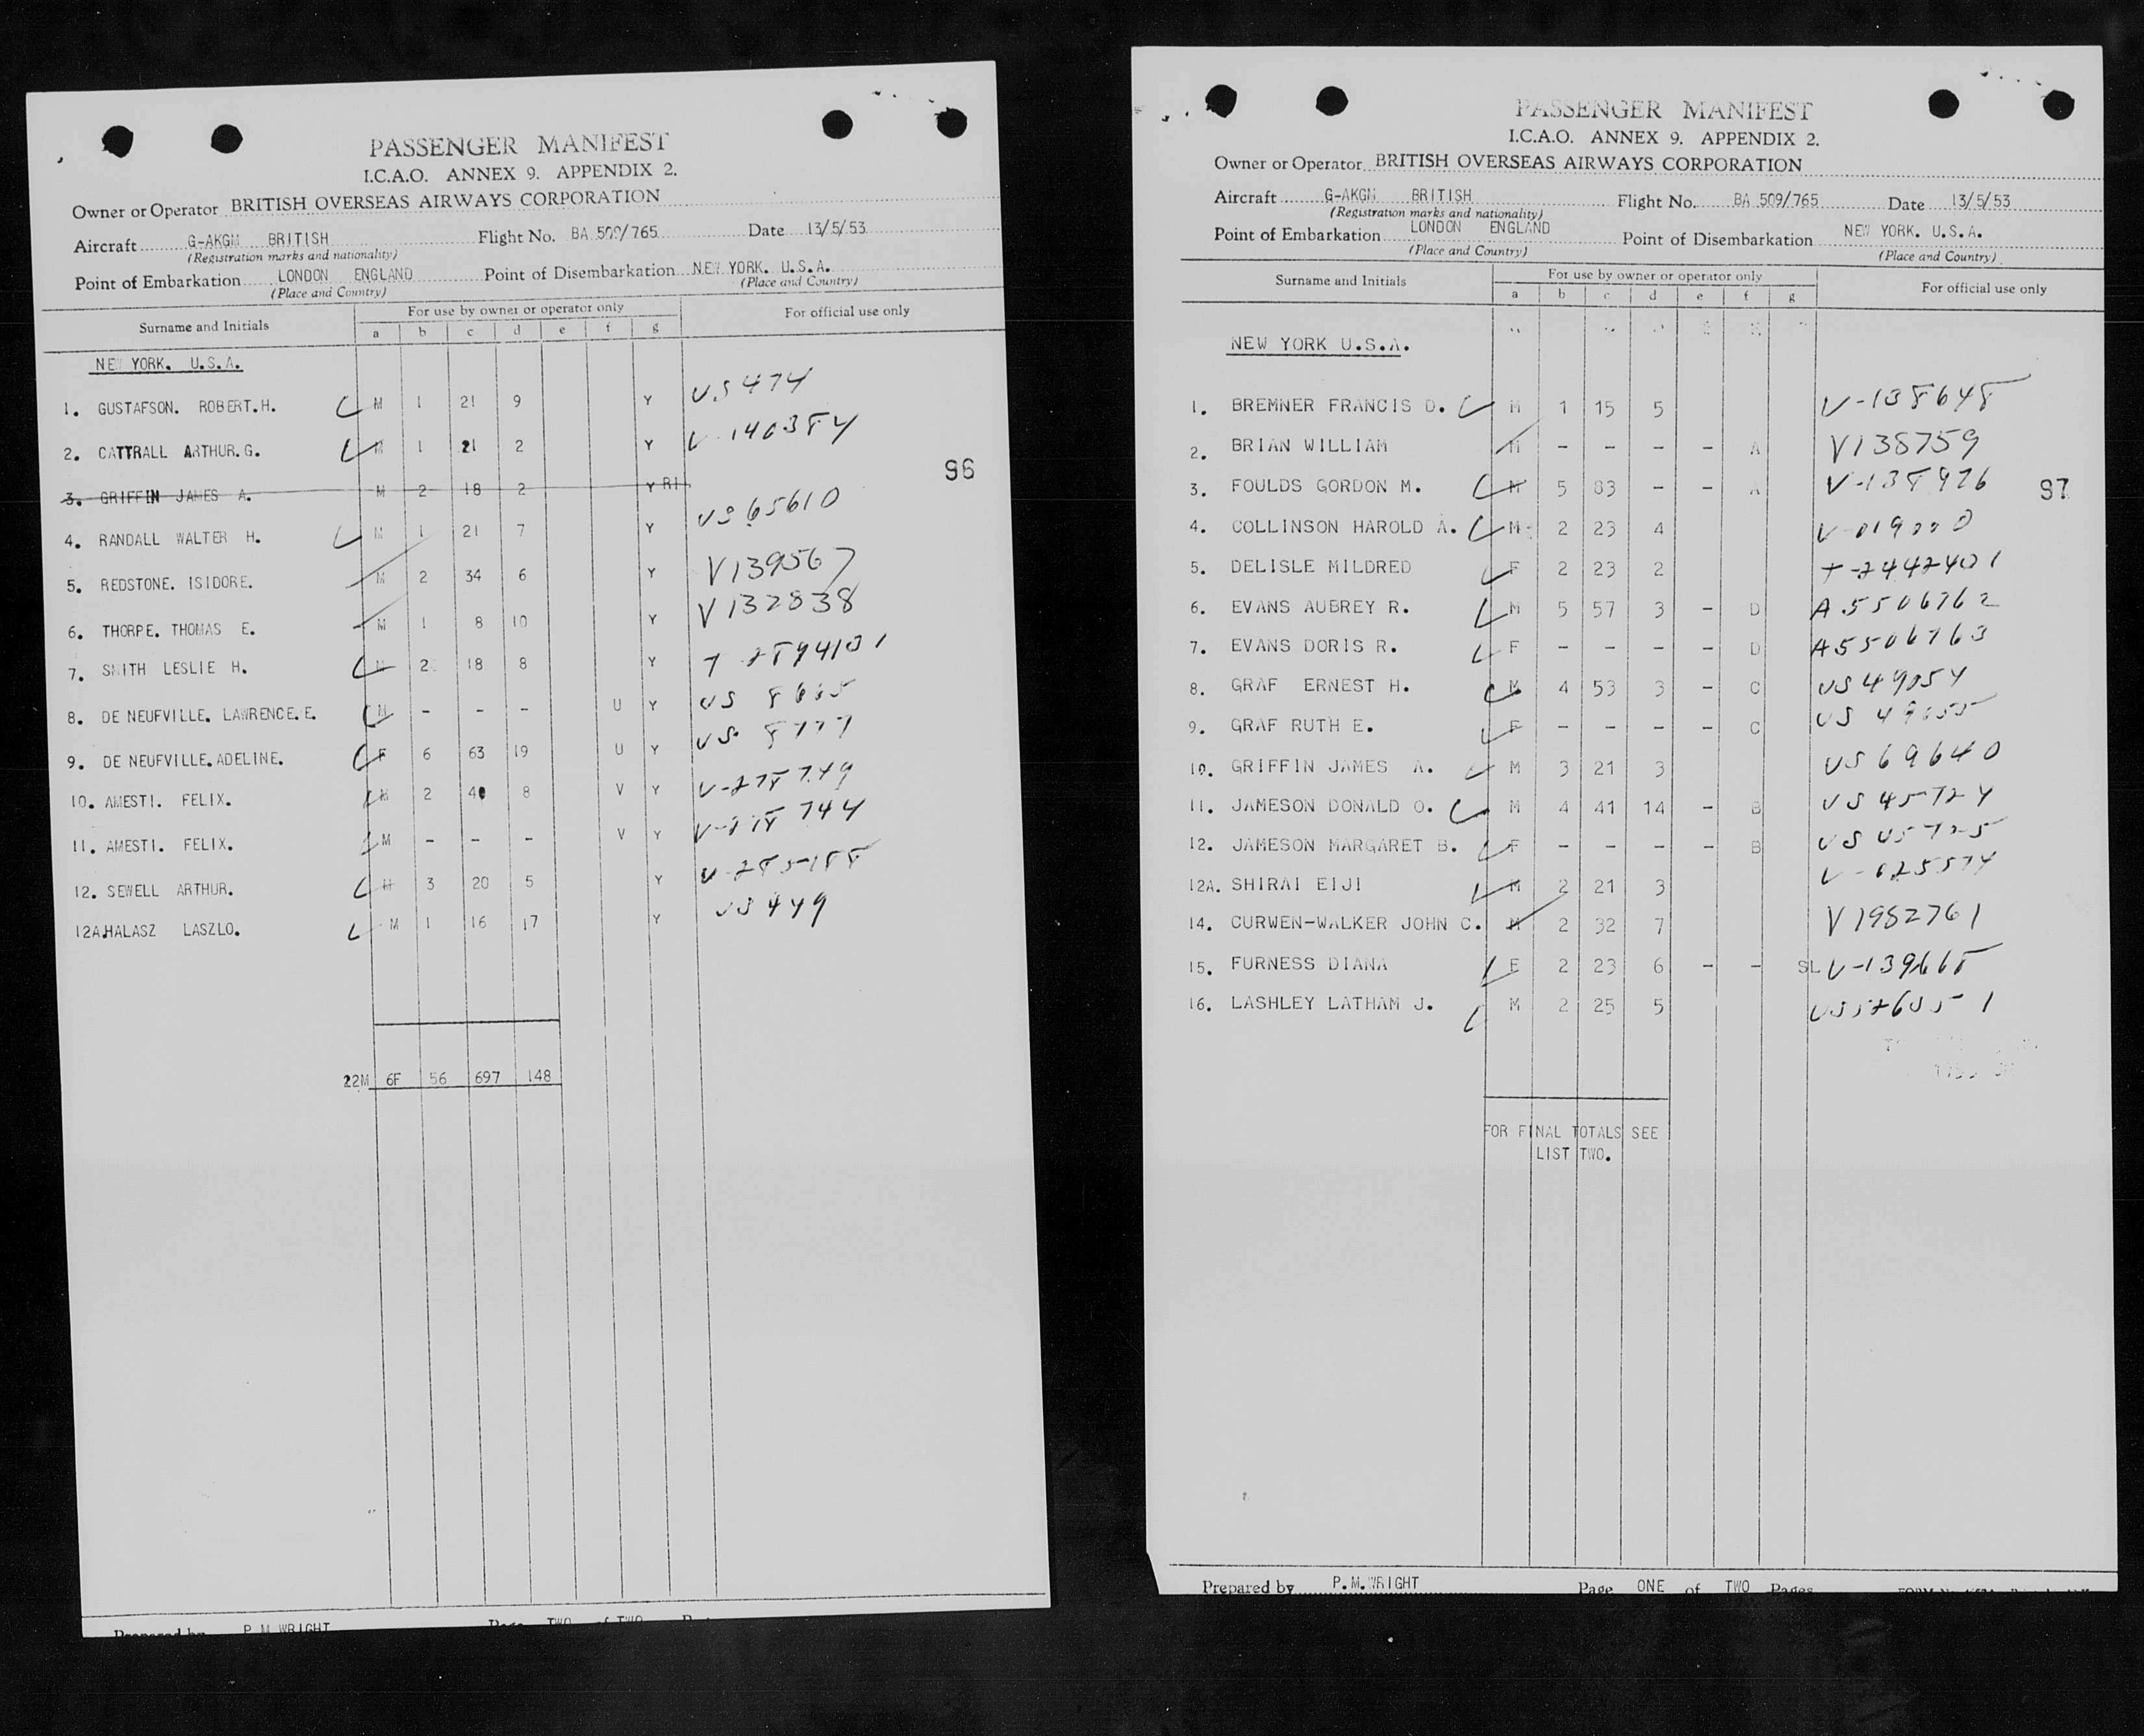 PASSENGER MANIFEST
I.C.A.O. ANNEX 9. APPENDIX 2.
Owner or Operator BRITISH OVERSEAS AIRWAYS CORPORATION
Aircraft G-AKGM BRITISH Flight No. BA 509/765 Date 13/5/53
(Registration marks and nationality)
Point of Embarkation LONDON ENGLAND Point of Disembarkation NEW YORK. U.S.A.
(Place and Country) (Place and Country)
Surname and Initials For use by owner or operator only For official use only
a b c d e f g
NEW YORK. U.S.A.
1. GUSTAFSON. ROBERT.H. M 1 21 9 Y US 474
2. CATTRALL ARTHUR.G. M 1 21 2 Y V-140384
3. GRIFFIN JAMES A. M 2 18 2 Y RI
96
4. RANDALL WALTER H. M 1 21 7 Y US 65610
5. REDSTONE. ISIDORE. M 2 34 6 Y V139567
6. THORPE. THOMAS E. M 1 8 10 Y V132838
7. SMITH LESLIE H. M 2 18 8 Y
8. DE NEUFVILLE. LAWRENCE.E. M - - - U Y US
9. DE NEUFVILLE.ADELINE. F 6 63 19 U Y US
10. AMESTI. FELIX. M 2 40 8 V Y
11. AMESTI. FELIX. M - - - V Y
12. SEWELL ARTHUR. M 3 20 5 Y V-285188
12A.HALASZ LASZLO. M 1 16 17 Y US 449
22M 6F 56 697 148
Prepared by P.M.WRIGHT Page TWO of TWO
PASSENGER MANIFEST
I.C.A.O. ANNEX 9. APPENDIX 2.
Owner or Operator BRITISH OVERSEAS AIRWAYS CORPORATION
Aircraft G-AKGM BRITISH Flight No. BA 509/765 Date 13/5/53
(Registration marks and nationality)
Point of Embarkation LONDON ENGLAND Point of Disembarkation NEW YORK. U.S.A.
(Place and Country) (Place and Country)
Surname and Initials For use by owner or operator only For official use only
a b c d e f g
NEW YORK U.S.A.
1. BREMNER FRANCIS D. M 1 15 5 V-138648
2. BRIAN WILLIAM M - - - - A V138759
3. FOULDS GORDON M. M 5 83 - - A V-138976
97
4. COLLINSON HAROLD A. M 2 23 4
5. DELISLE MILDRED F 2 23 2 T-2442401
6. EVANS AUBREY R. M 5 57 3 - D A5506762
7. EVANS DORIS R. F - - - - D A5506763
8. GRAF ERNEST H. M 4 53 3 - C US 49054
9. GRAF RUTH E. F - - - - C US 49055
10. GRIFFIN JAMES A. M 3 21 3 US 69640
11. JAMESON DONALD O. M 4 41 14 - B US 45724
12. JAMESON MARGARET B. F - - - - B US 45725
12A. SHIRAI EIJI M 2 21 3 V-625574
14. CURWEN-WALKER JOHN C. M 2 32 7 V1982761
15. FURNESS DIANA F 2 23 6 - - SL V-139668
16. LASHLEY LATHAM J. M 2 25 5
FOR FINAL TOTALS SEE
LIST TWO.
Prepared by P.M.WRIGHT Page ONE of TWO Pages